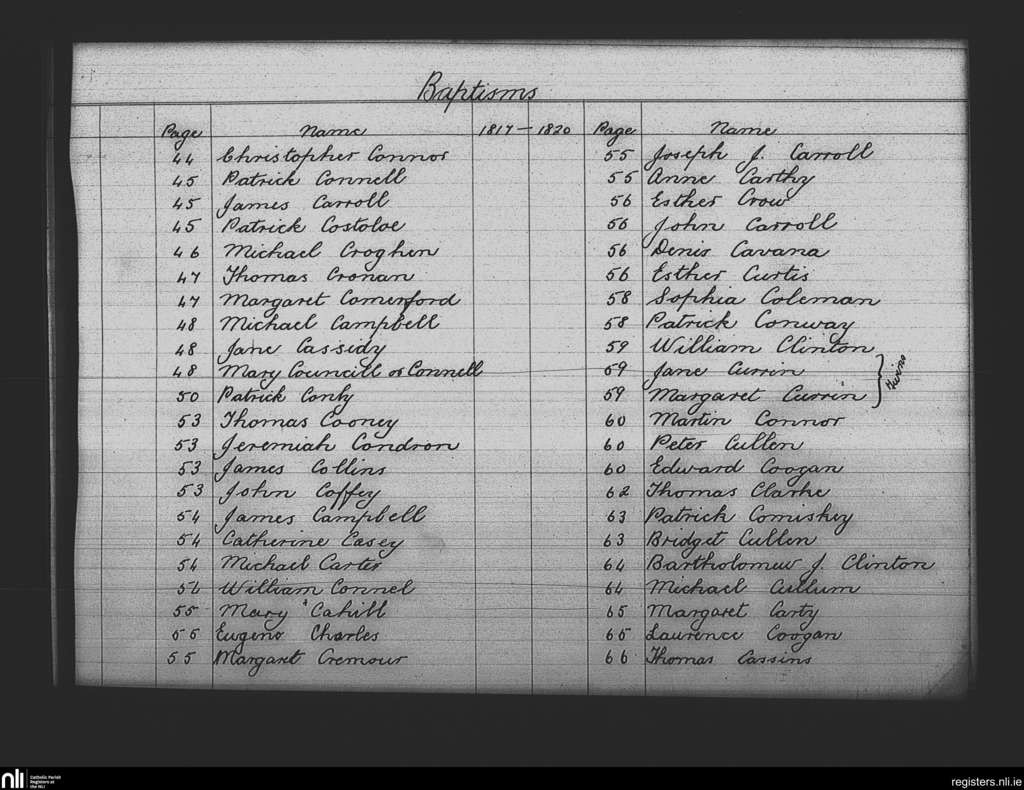 Baptisms
Page Name 1817 — 1820 Page Name
44 Christopher Connor
45 Patrick Connell
45 James Carroll
45 Patrick Costoloe
46 Michael Croghen
47 Thomas Cronan
47 Margaret Comerford
48 Michael Campbell
48 Jane Cassidy
48 Mary Councill or Connell
50 Patrick Conly
53 Thomas Cooney
53 Jeremiah Condron
53 James Collins
53 John Coffey
54 James Campbell
54 Catherine Casey
54 Michael Carter
54 William Connel
55 Mary Cahill
55 Eugene Charles
55 Margaret Cremour
55 Joseph J. Carroll
55 Anne Carthy
56 Esther Crow
56 John Carroll
56 Denis Cavana
56 Esther Curtis
58 Sophia Coleman
58 Patrick Conway
59 William Clinton
59 Jane Currin
59 Margaret Currin
Twins
60 Martin Connor
60 Peter Cullen
60 Edward Coogan
62 Thomas Clarke
63 Patrick Comiskey
63 Bridget Cullen
64 Bartholomew J. Clinton
64 Michael Cullum
65 Margaret Carty
65 Laurence Coogan
66 Thomas Cassins
nli
Catholic Parish
Registers at
the NLI
registers.nli.ie